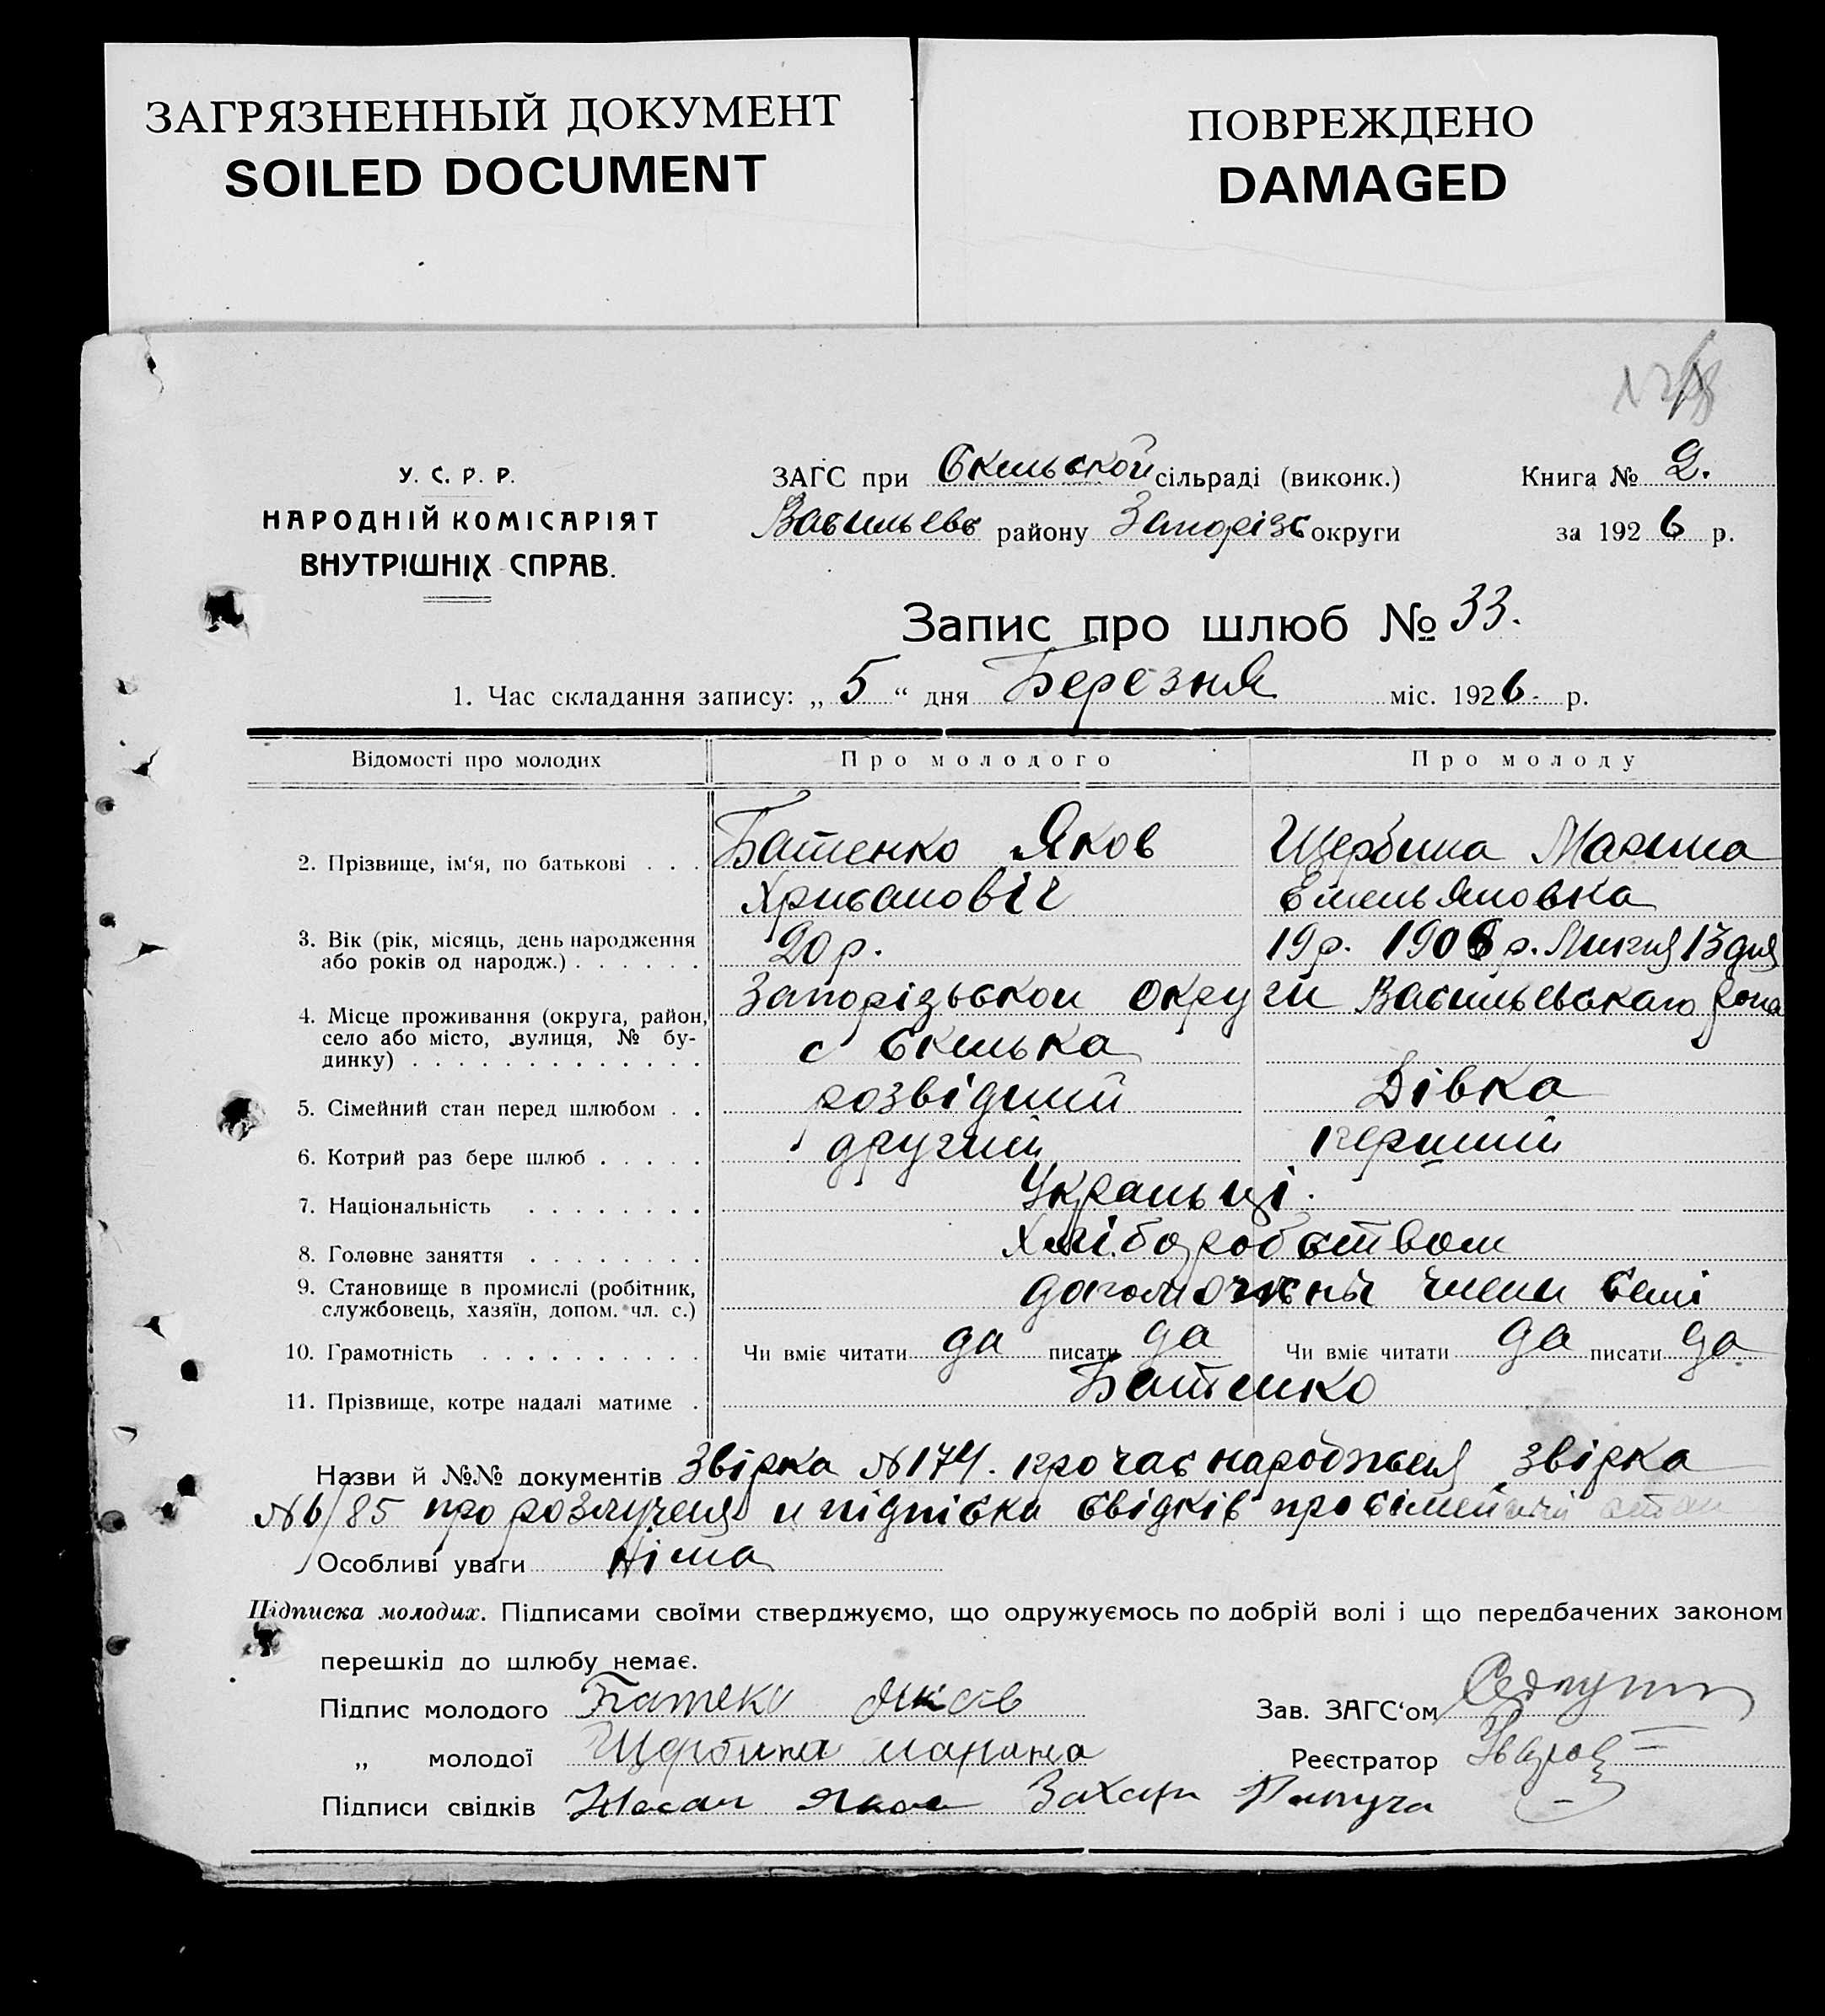 ЗАГРЯЗНЕННЫЙ ДОКУМЕНТ
SOILED DOCUMENT
ПОВРЕЖДЕНО
DAMAGED
У. С. Р. Р.
НАРОДНІЙ КОМІСАРІЯТ
ВНУТРІШНІХ СПРАВ.
ЗАГС при Скельской сільраді (виконк.)
Васильевс району Запоріз округи
Книга № 2.
за 1926 р.
Запис про шлюб № 33.
1. Час складання запису: „5“ дня Березня міс. 1926 р.
Відомості про молодих
Про молодого
Про молоду
2. Прізвище, ім‘я, по батькові . . .
Батенко Яков
Хрисановіч
Щербина Марина
Емельяновна
3. Вік (рік, місяць, день народження
або років од народж.) . . . . . .
20 р.
19 р. 1906 р. Липня 13 дня
4. Місце проживання (округа, район,
село або місто, вулиця, № бу-
динку) . . . . . . . . . . . . .
Запорізьскои округи Васильевскаго
с Скелька
5. Сімейний стан перед шлюбом . .
розвідний
Дівка
6. Котрий раз бере шлюб . . . . .
другий
перший
7. Національність . . . . . . . .
Украиньці.
8. Головне заняття . . . . . . . .
Хліборобством
9. Становище в промислі (робітник,
службовець, хазяїн, допом. чл. с.)
члени семі
10. Грамотність . . . . . . . . . .
Чи вміє читати да писати да
Чи вміє читати да писати да
11. Прізвище, котре надалі матиме .
Батенко
Назви й №№ документів Звірка №174. про час народженя звірка
№6/85 про розлученя и підпіска свідків про сімейний стан
Особливі уваги Німа
Підписка молодих. Підписами своїми стверджуємо, що одружуємось по добрій волі і що передбачених законом
перешкід до шлюбу немає.
Підпис молодого Батеко Яков
Зав. ЗАГС‘ом
„ молодої Щербина Марина
Реєстратор
Підписи свідків Яков Захар